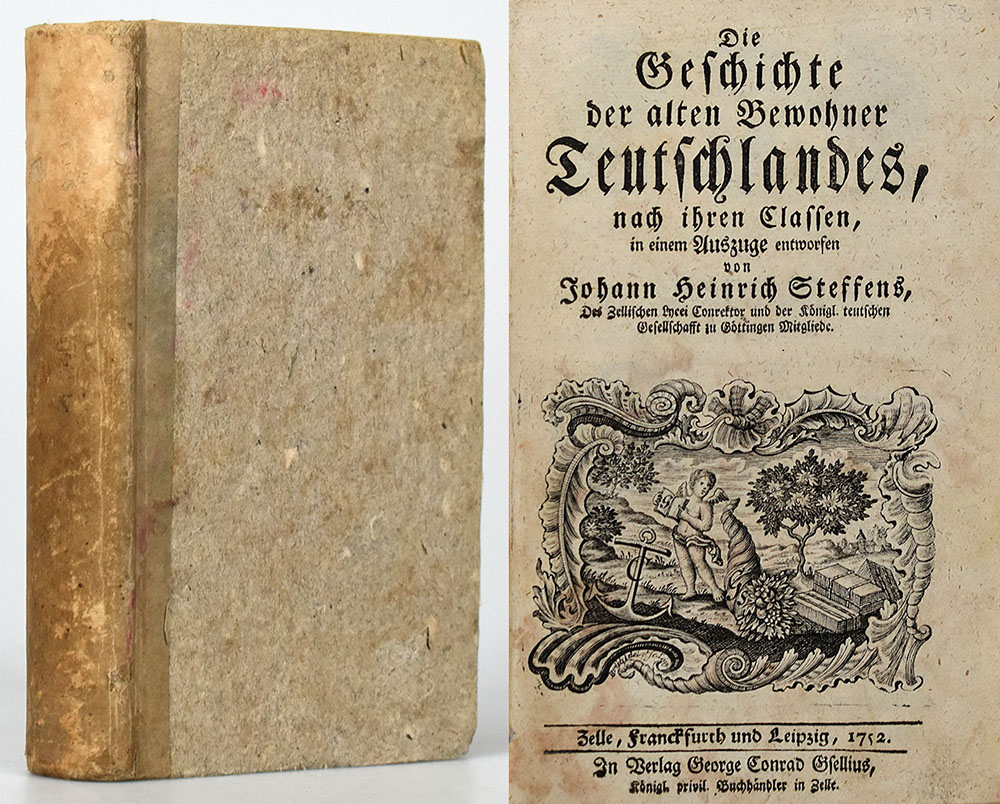 Die
Geschichte
der alten Bewohner
Teutschlandes,
nach ihren Classen,
in einem Auszuge entworfen
von
Johann Heinrich Steffens,
Des Zellischen Lycei Conrektor und der Königl. teutschen
Gesellschafft zu Göttingen Mitgliede.
Zelle, Franckfurth und Leipzig, 1752.
In Verlag George Conrad Gsellius,
Königl. privil. Buchhändler in Zelle.